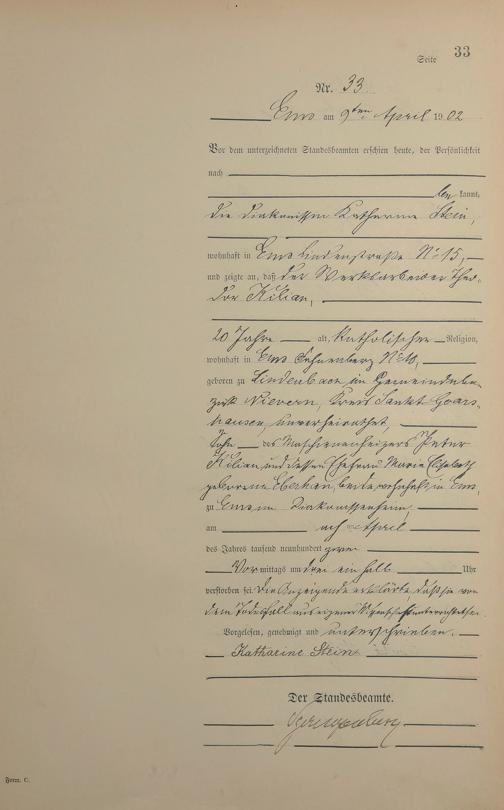 Seite 33
Nr. 33
Ems am 9ten April 1902
Vor dem unterzeichneten Standesbeamten erschien heute, der Persönlichkeit
nach
kannt,
die Diakonissin Katharine Stein,
wohnhaft in Ems Lindenstraße No 15,
und zeigte an, daß der Werksarbeiter Theo-
dor Kilian,
20 Jahre alt, Katholischer Religion,
wohnhaft in Ems No
geboren zu Lindenbach im Gemeindebe-
zirk Nievern, Kreis Sankt Goars-
hausen, unverheirathet,
Sohn des Maschinenheizers Peter
Kilian und dessen Ehefrau Marie Elisabeth
geborene beide wohnhaft in Ems,
zu Ems im Diakonissenheim,
am April
des Jahres tausend neunhundert zwei
Vormittags um drei ein halb Uhr
verstorben sei. Die Anzeigende erklärte, daß sie von
dem Todesfall aus eigener
Vorgelesen, genehmigt und unterschrieben.
Katharine Stein
Der Standesbeamte.
Form. C.